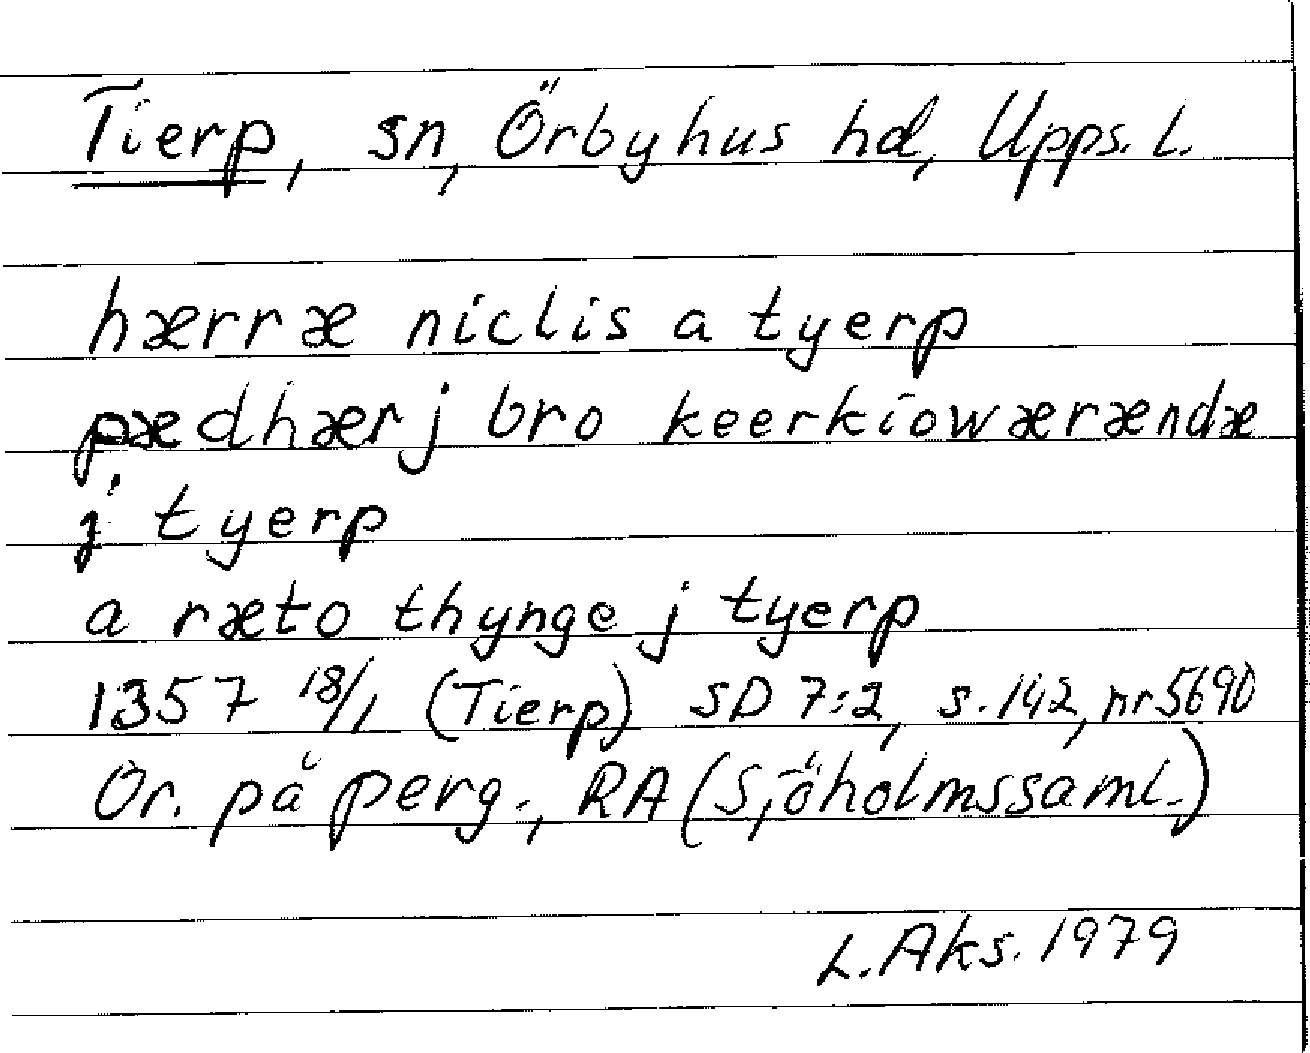 Tierp, sn, Örbyhus hd, Upps. l.
hærræ niclis a tyerp
pædhær j bro keerkiowærændæ
j tyerp
a ræto thynge j tyerp
1357 18/1 (Tierp) SD 7:2, s. 142, nr 5690
Or. på perg., RA (Sjöholmssaml.)
L. Aks. 1979